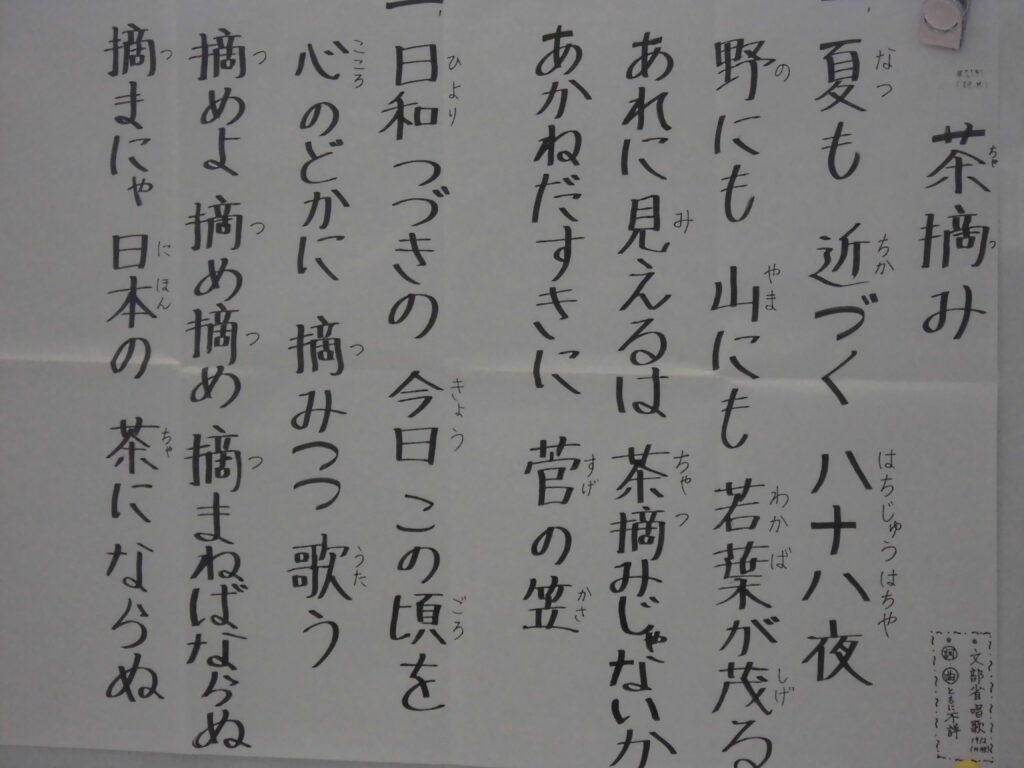 茶摘み
夏も 近づく 八十八夜
野にも 山にも 若葉が茂る
あれに見えるは 茶摘みじゃないか
あかねだすきに 菅の笠
日和つづきの 今日この頃を
心のどかに 摘みつつ 歌う
摘めよ 摘め摘め 摘まねばならぬ
摘まにゃ 日本の 茶にならぬ
・文部省唱歌
・詞 曲 ともに不詳